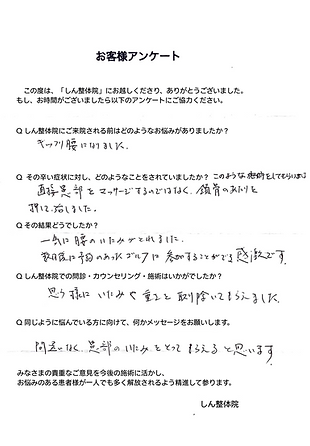 お客様アンケート
この度は、「しん整体院」にお越しくださり、ありがとうございました。
もし、お時間がございましたら以下のアンケートにご協力ください。
Q しん整体院にご来院される前はどのようなお悩みがありましたか?
ギックリ腰になりました。
Q その辛い症状に対し、どのようなことをされていましたか? このような施術をしてもらいました
直接患部をマッサージするのではなく、鎖骨のあたりを
押して、治しました。
Q その結果どうでしたか?
一気に腰のいたみがとれました。
数日後に予約のあったゴルフに参加することができ感激です。
Q しん整体院での問診・カウンセリング・施術はいかがでしたか?
思う様にいたみや重さを取り除いてもらえました。
Q 同じように悩んでいる方に向けて、何かメッセージをお願いします。
間違いなく患部のいたみをとってもらえると思います
みなさまの貴重なご意見を今後の施術に活かし、
お悩みのある患者様が一人でも多く解放されるよう精進して参ります。
しん整体院